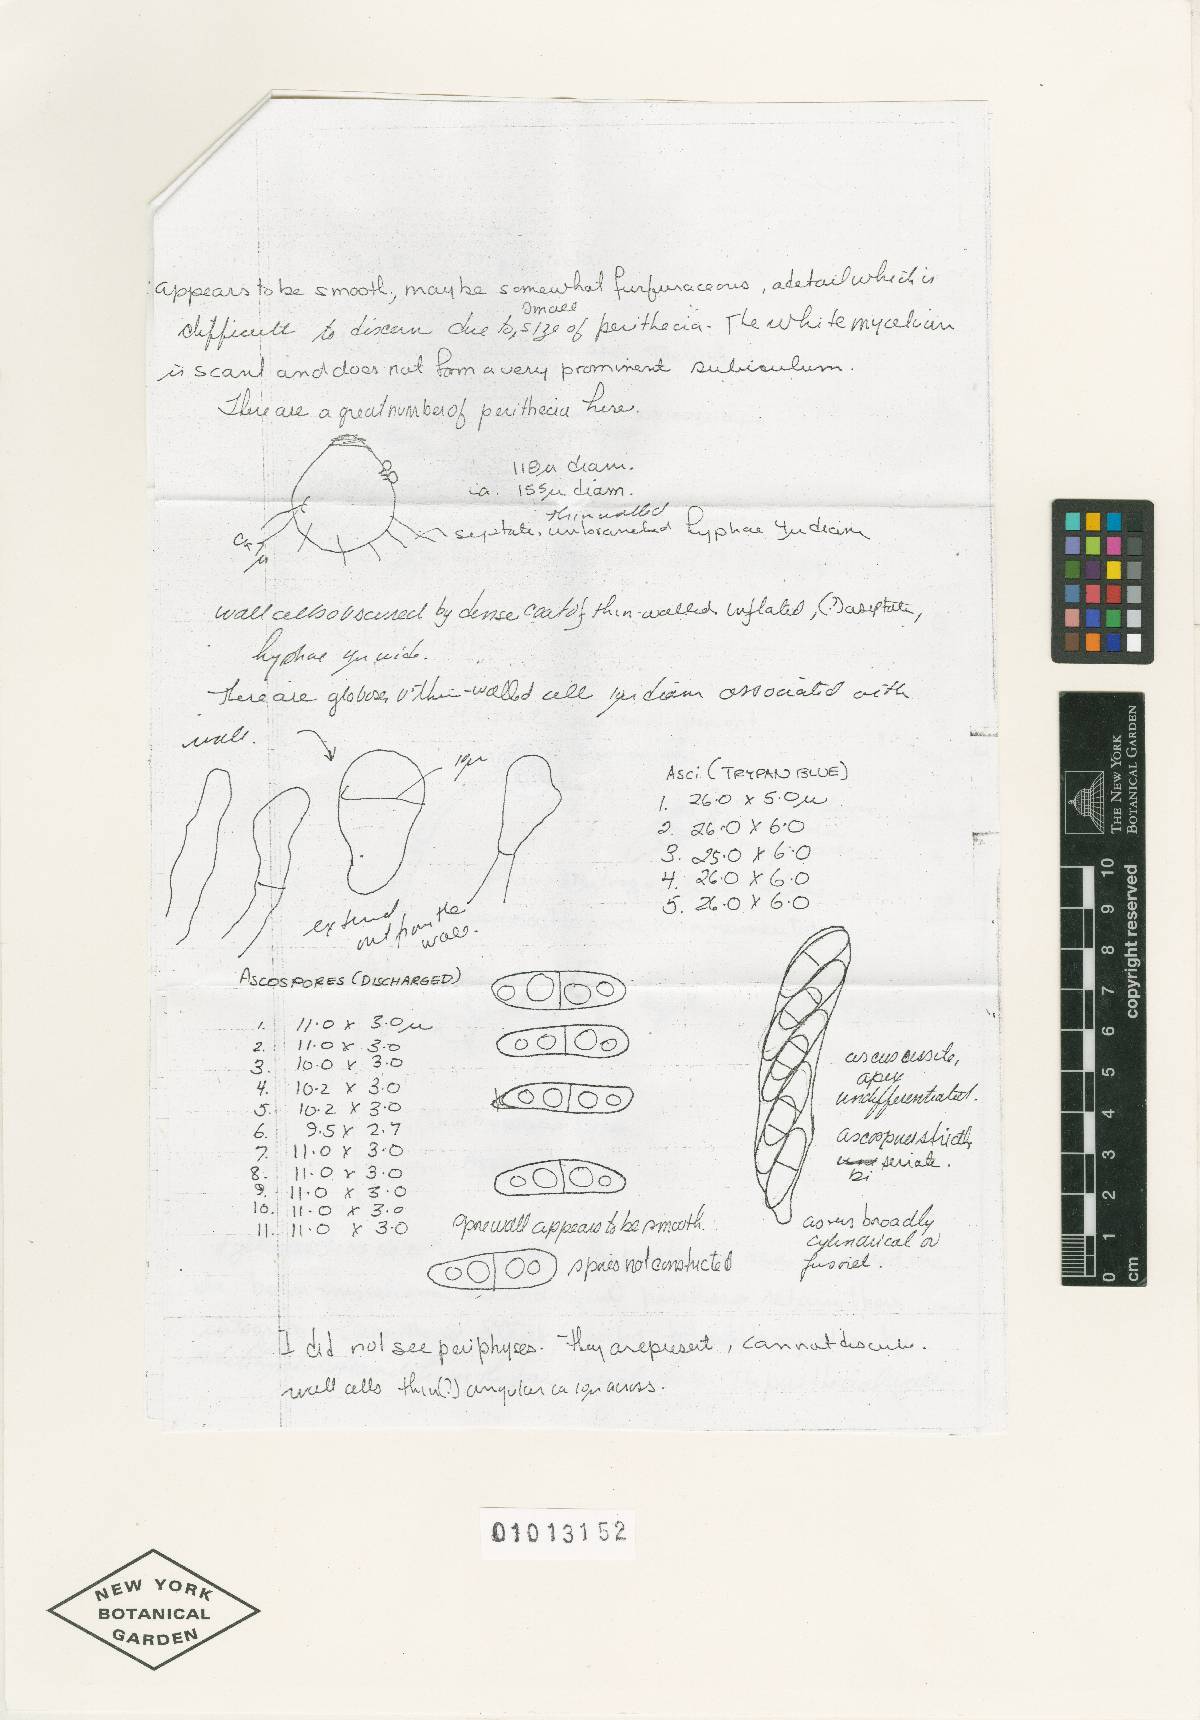 appears to be smooth, maybe somewhat furfuraceous, a detail which is
difficult to discern due to small size of perithecia. The white mycelium
is scant and does not form a very prominent subiculum.
There are a great number of perithecia here.
118µ diam.
ca. 155µ diam.
thin walled
septate, unbranched hyphae 4µ diam
wall cells obscured by dense coat of thin-walled inflated, (?) aseptate,
hyphae 4µ wide.
There are globose, thin-walled cell diam associated with
wall.
19µ
extend
out from the
wall.
Asci (TRYPAN BLUE)
1. 26.0 x 5.0µ
2. 26.0 x 6.0
3. 25.0 x 6.0
4. 26.0 x 6.0
5. 26.0 x 6.0
ASCOSPORES (DISCHARGED)
1. 11.0 x 3.0µ
2. 11.0 x 3.0
3. 10.0 x 3.0
4. 10.2 x 3.0
5. 10.2 x 3.0
6. 9.5 x 2.7
7. 11.0 x 3.0
8. 11.0 x 3.0
9. 11.0 x 3.0
10. 11.0 x 3.0
11. 11.0 x 3.0
ascus sessile,
apex
undifferentiated.
ascospores strictly
seriate.
bi
ascus broadly
cylindrical or
fusoid.
Spore wall appears to be smooth.
spores not constricted
I did not see periphyses. They are present, cannot
wall cells thin(?) angular ca across.
01013152
NEW YORK
BOTANICAL
GARDEN
THE NEW YORK
BOTANICAL GARDEN
copyright reserved
0 1 2 3 4 5 6 7 8 9 10
cm